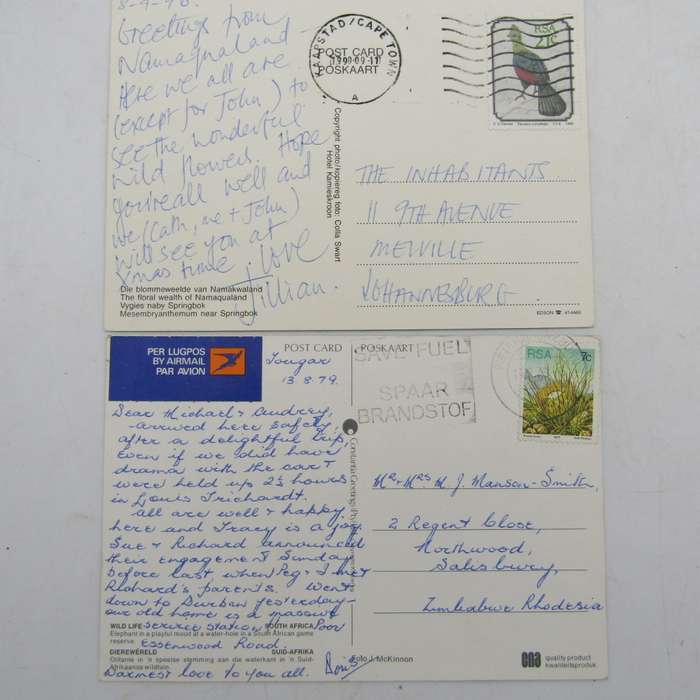 8-9-90.
Greetings from
Namaqualand -
Here we all are
(except for John) to
see the wonderful
wild flowers. Hope
you're all well and
we (Cath, me + John)
will see you at
Xmas time. Love
Jillian.
Die blommeweelde van Namakwaland
The floral wealth of Namaqualand
Vygies naby Springbok
Mesembryanthemum near Springbok
Copyright photo/kopiereg foto: Colla Swart
Hotel Kamieskroon
POST CARD
POSKAART
KAAPSTAD/CAPE TOWN
A
RSA
21c
THE INHABITANTS
11 9TH AVENUE
MELVILLE
JOHANNESBURG
EDSON
PER LUGPOS
BY AIRMAIL
PAR AVION
POST CARD
POSKAART
SAVE FUEL
SPAAR
BRANDSTOF
RSA
7c
Tongaat
13.8.79.
Dear Michael & Audrey,
-arrived here safely,
after a delightful trip,
even if we did have
drama with the car &
were held up 2½ hours
in Louis Trichardt.
All are well & happy
here and Tracy is a joy.
Sue & Richard announced
their engagement Sunday
before last, when Peg & I met
Richard's parents. Went
down to Durban yesterday-
our old home is a massive
service station, Poor
Essenwood Road.
Warmest love to you all.
Doris
WILD LIFE
SOUTH AFRICA
Elephant in a playful mood at a water-hole in a South African game
reserve.
DIEREWÊRELD
SUID-AFRIKA
Olifante in 'n speelse stemming aan die waterkant in 'n Suid-
Afrikaanse wildtuin.
Foto J. McKinnon
Mr & Mrs M. J. Manson-Smith,
2 Regent Close,
Northwood,
Salisbury,
Zimbabwe Rhodesia
cna
quality product
kwaliteitsproduk